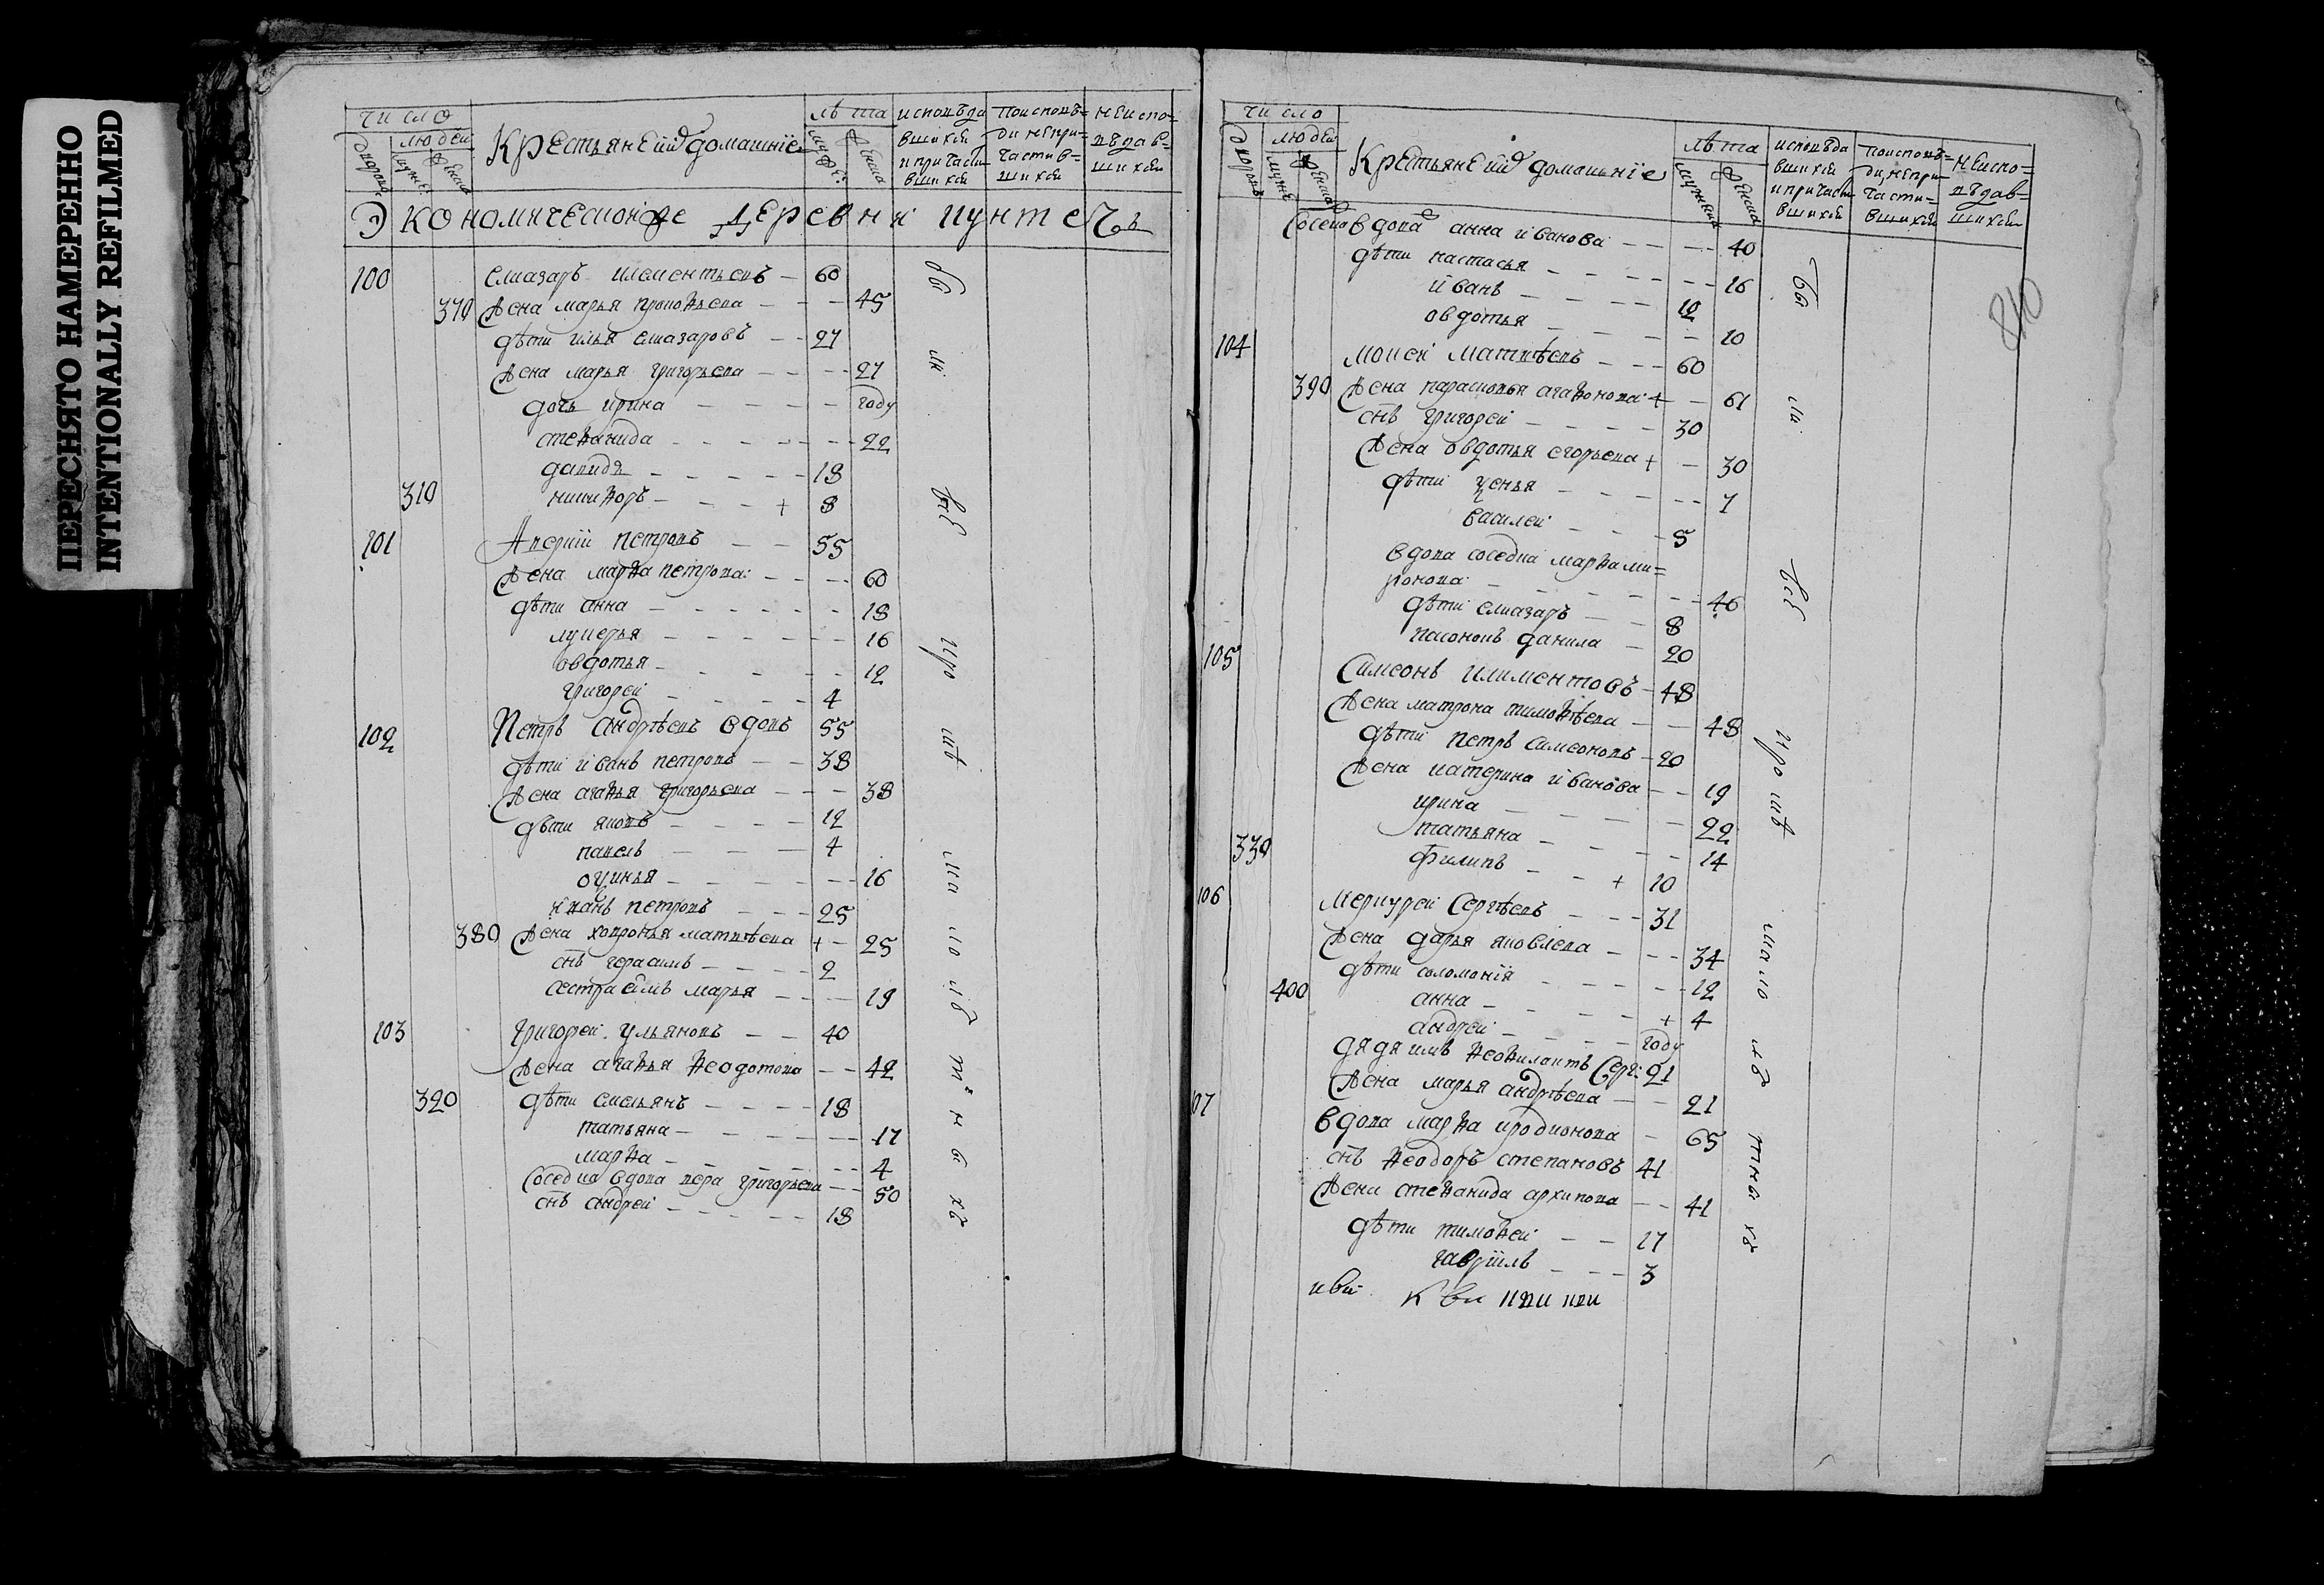 ПЕРЕСНЯТО НАМЕРЕННО
INTENTIONALLY REFILMED
число
людей
Крестьяне и ихъ домашнiе
лѣта
исповѣда
вшихся
и причасти
вшихся
по исповѣ=
ди непри=
частив=
шихся
неиспо=
вѣдав=
шихся
Экономической же деревни
100 Елиазаръ Клементьевъ 60
370 Жена марья прокофьева 45
дѣти илья елиазаровъ 27
Жена марья григорьева 27
дочь ирина году
стефанида 22
давидъ 18
310 никифоръ + 8
101 Аверкiй петровъ 55
Жена марфа петрова 60
дѣти анна 18
лукерья 16
овдотья 12
григорей 4
102 Петръ андрѣевъ вдовъ 55
дѣти иванъ петровъ 38
Жена агафья григорьева 38
дѣти яковъ 12
павелъ 4
16
иванъ петровъ 25
380 Жена хавронья матвѣева + 25
снъ герасимъ 2
сестра ему марья 19
103 Григорей ульяновъ 40
Жена агафья феодотова 42
320 дѣти емельянъ 18
татьяна 17
марфа 4
соседка вдова вера григорьева 50
снъ андрей 18
число
людей
Крестьяне и ихъ домашнiе
лѣта
исповѣда
вшихся
и причасти
вшихся
по исповѣ=
ди непри=
части=
вшихся
неиспо=
вѣдав=
шихся
840
вдова анна иванова 40
дѣти настасья 16
иванъ 12
овдотья 10
104 Моисей матвѣевъ 60
390 Жена парасковья агафонова + 61
снъ григорей 30
Жена овдотья егорьева + 30
дѣти 7
василей 5
вдова соседка марфа ми=
ронова 46
дѣти елиазаръ 8
пасонокъ данила 20
105 Симеонъ климентовъ 48
Жена матрона тимофѣева 48
дѣти петръ симеоновъ 20
Жена катерина иванова 19
ирина 22
татьяна 14
330 филипъ + 10
106 Меркурей Сергѣевъ 31
Жена дарья яковлева 34
дѣти соломонiя 12
400 анна + 4
андрей году
дядя имъ феофилактъ Серг: 21
Жена марья андрѣева 21
107 вдова марфа иродионова 65
снъ феодоръ степановъ 41
Жена стефанида архипова 41
дѣти тимофей 17
гаврiилъ 3